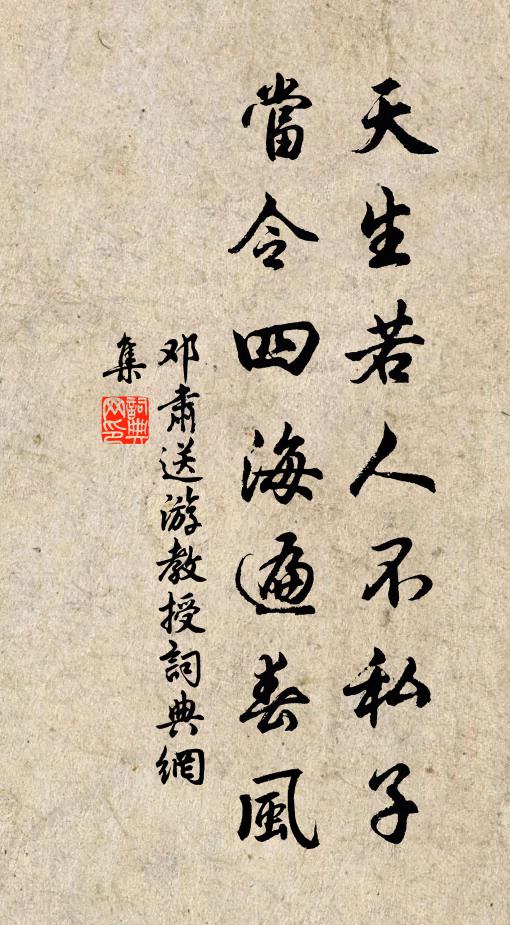 天生若人不私子
當令四海遍春風
邓肅送游教授詞典網
集
詞典
网印